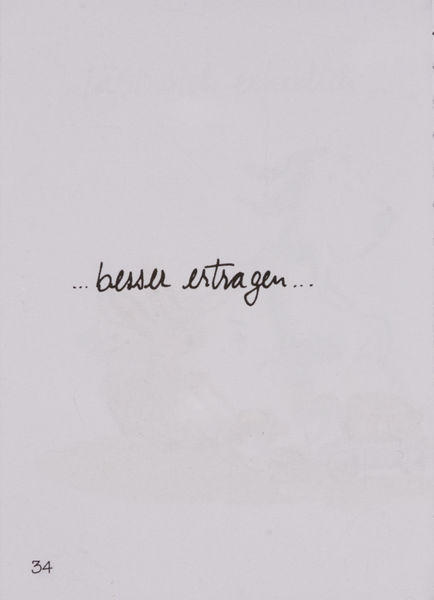 ...besser ertragen...
34